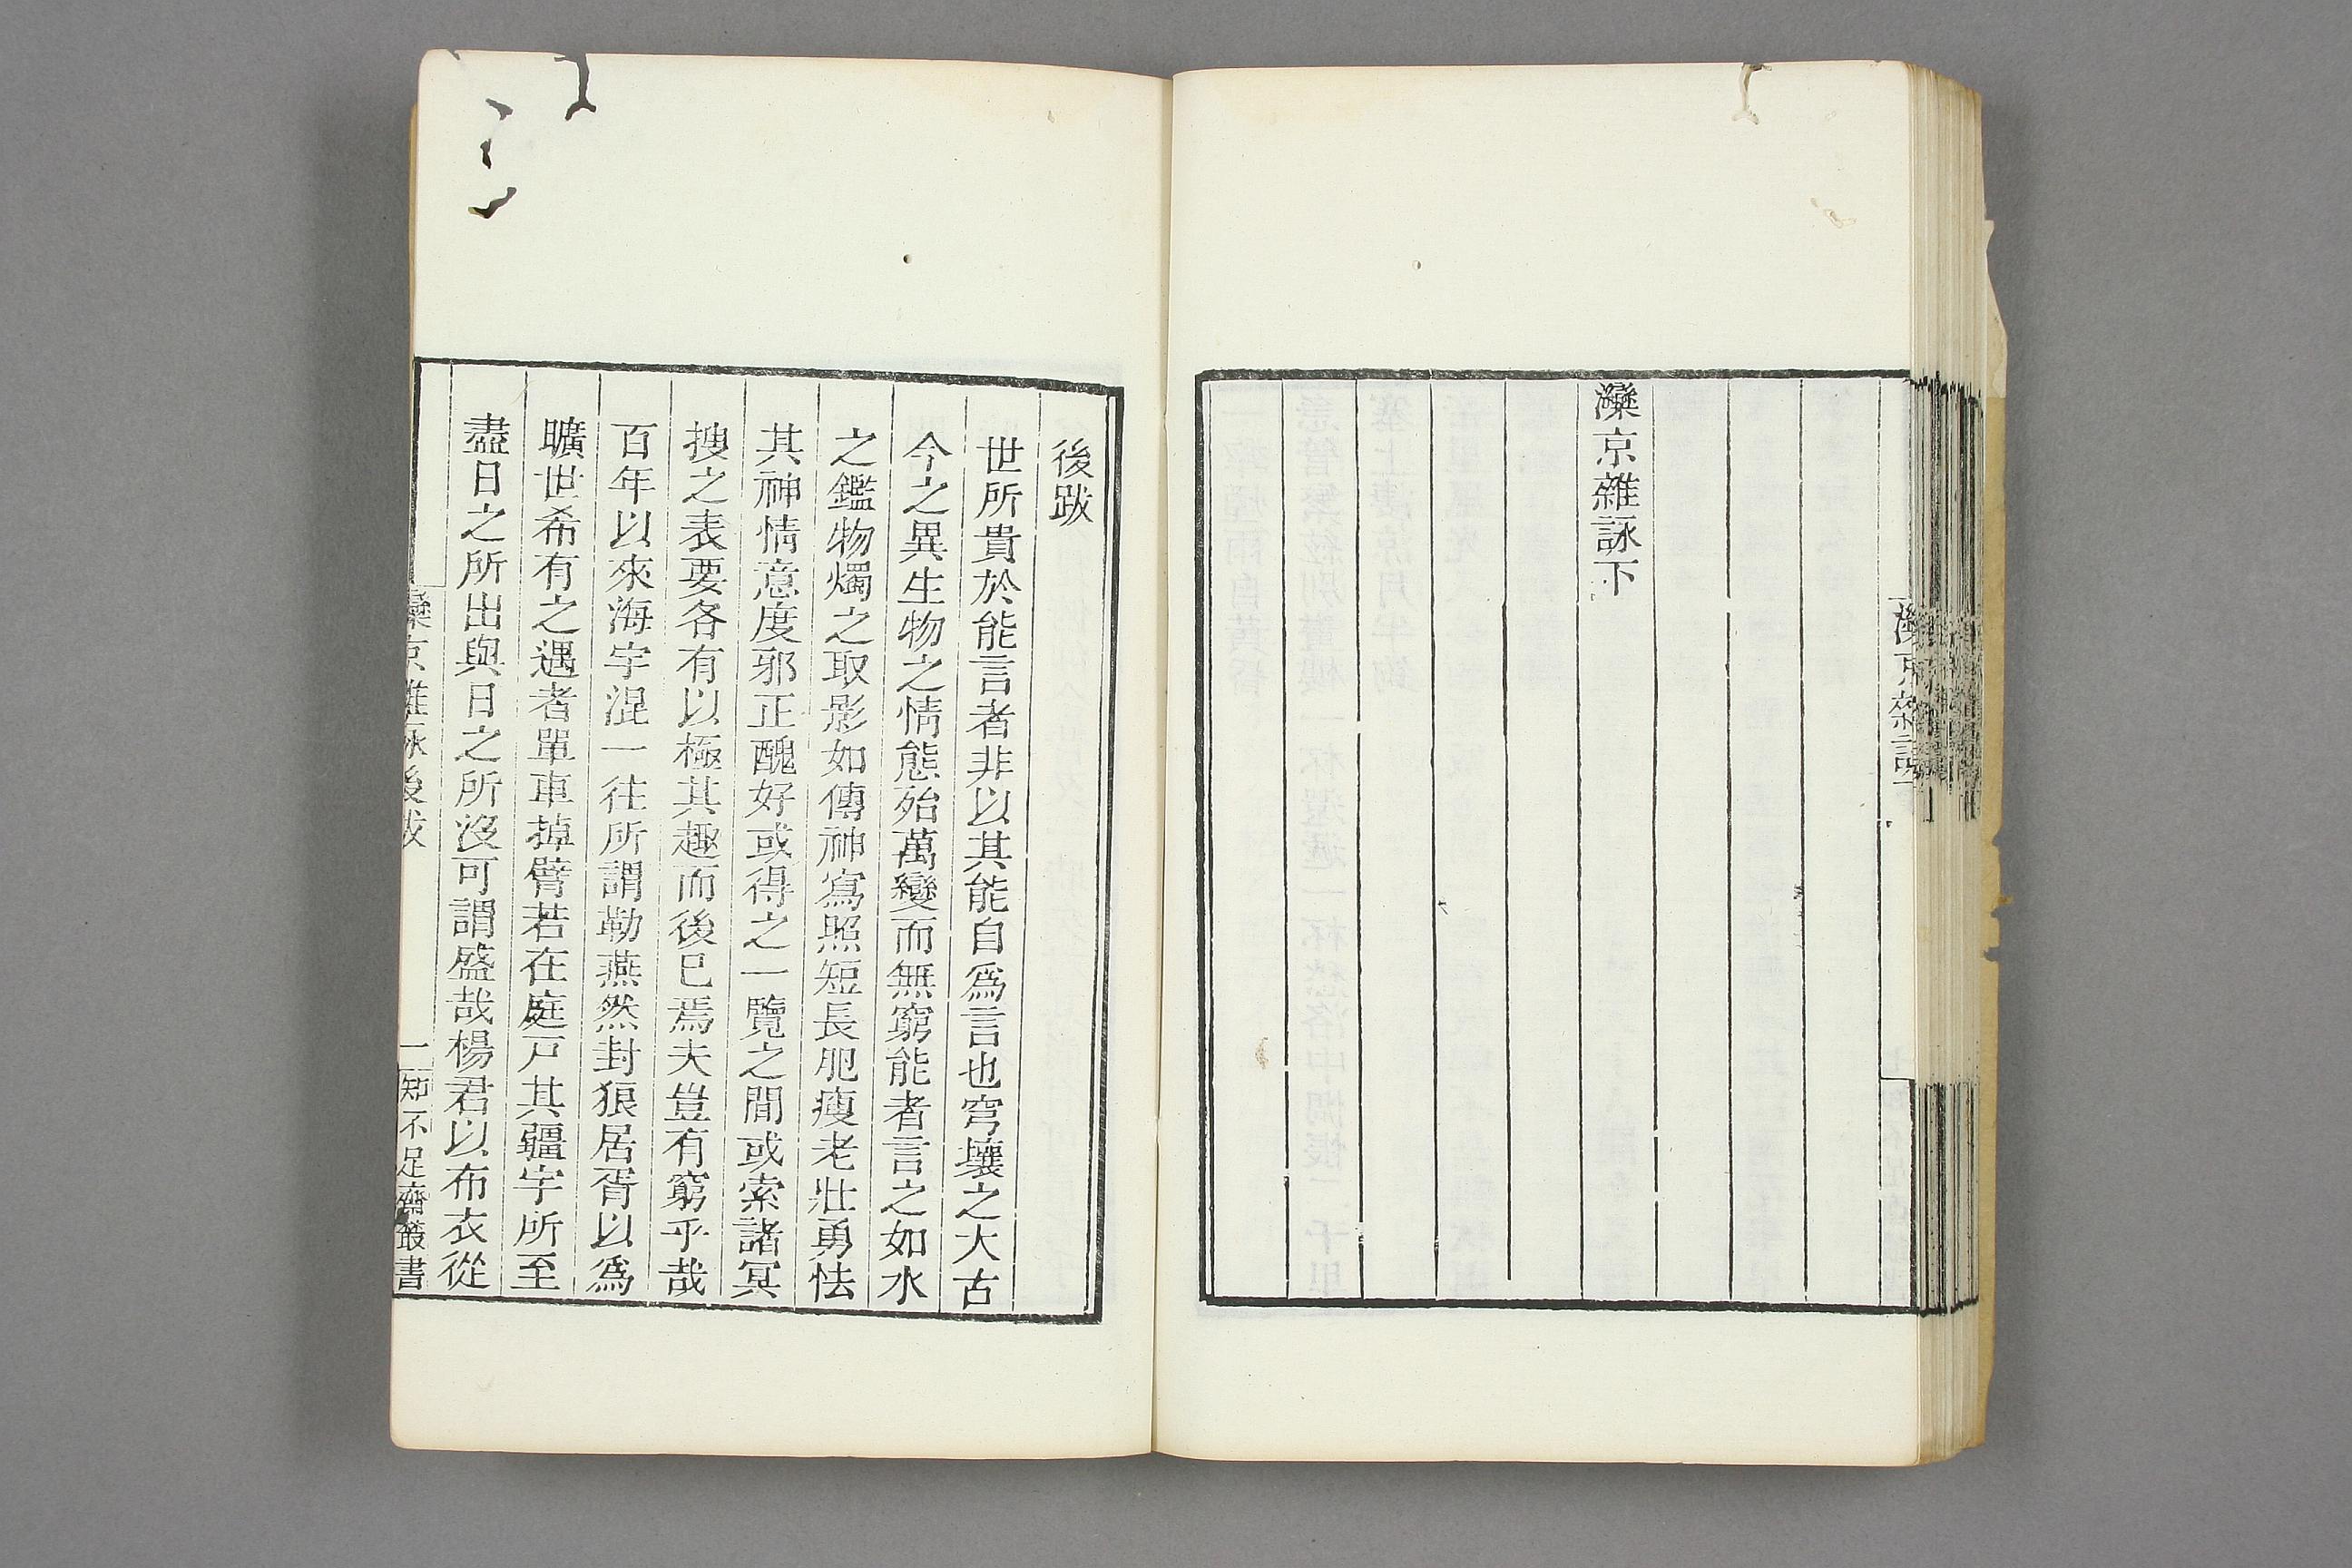 灤京雜詠下
後跋
世所貴於能言者非以其能自爲言也穹壤之大古
今之異生物之情態殆萬變而無窮能者言之如水
之鑑物燭之取影如傳神寫照短長肥瘦老壯勇怯
其神情意度邪正醜好或得之一覽之間或索諸冥
搜之表要各有以極其趣而後已焉夫豈有窮乎哉
百年以來海宇混一往所謂勒燕然封狼居胥以爲
曠世希有之遇者單車掉臂若在庭戸其疆宇所至
盡日之所出與日之所沒可謂盛哉楊君以布衣從
灤京雜詠後跋
一
知不足齋叢書